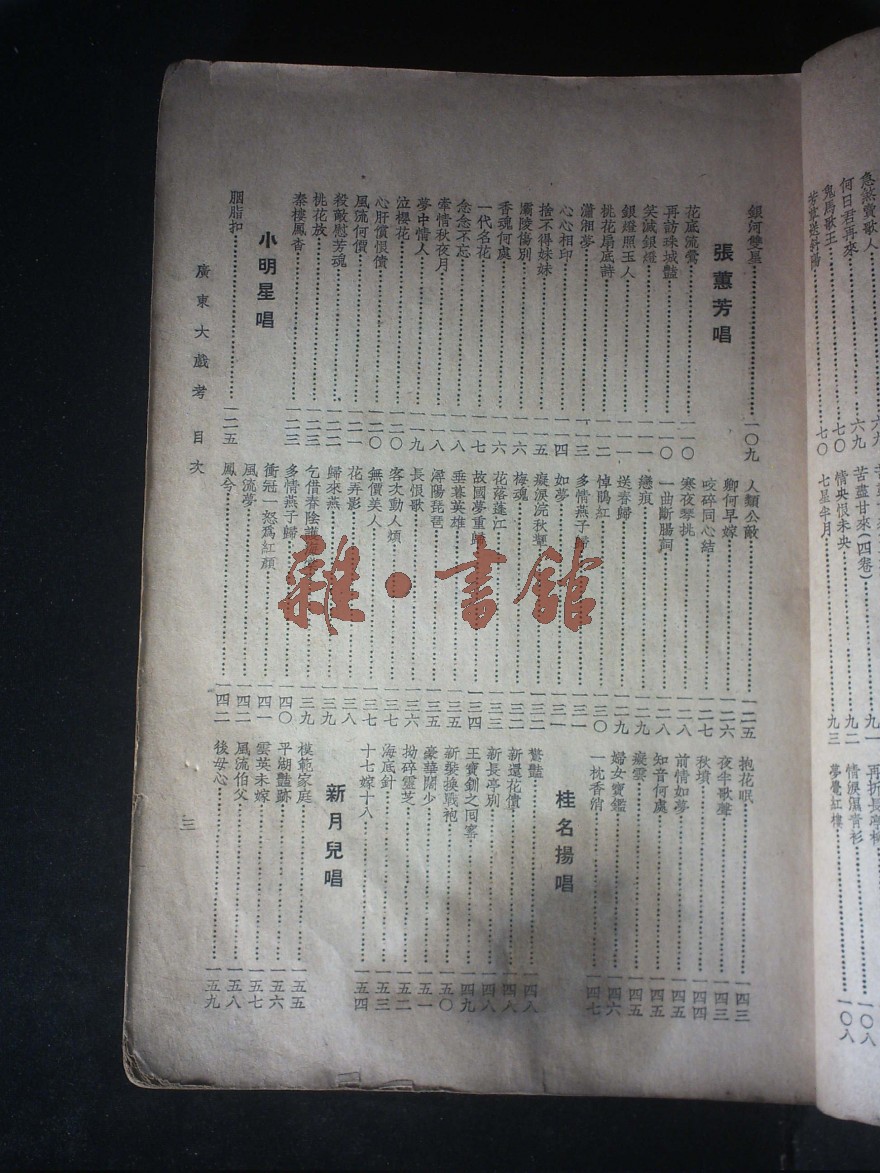 銀河雙星 一〇九
張蕙芳唱
花底流鶯 一一〇
再訪珠城豔 一一〇
笑諴銀燈 一一一
銀燈照玉人 一一一
桃花扇底詩 一一二
瀟湘夢 一一三
心心相印 一一四
捨不得妹妹 一一五
灞陵傷別 一一六
香魂何處 一一六
一代名花 一一七
念念不忘 一一八
牽情秋夜月 一一八
夢中情人 一一九
泣櫻花 一二〇
心肝償恨債 一二〇
風流何價 一二一
殺敵慰芳魂 一二二
桃花放 一二三
秦樓鳳杳 一二三
小明星唱
胭脂扣 一二五
人類公敵 一二五
卿何早嫁 一二六
咬碎同心結 一二七
寒夜琴挑 一二八
一曲斷腸詞 一二八
戀痕 一二九
送春歸 一二九
悼鵑紅 一三〇
多情燕子歸
如夢 一三一
癡淚浣秋 一三二
梅魂 一三二
花落蓬江 一三三
故國夢重歸 一三四
垂暮英雄 一三五
潯陽琵琶 一三五
長恨歌 一三六
客次動人煩 一三七
無價美人 一三七
花弄影 一三八
歸來燕 一三九
乞借春陰護 一三九
多情燕子歸 一四〇
衝冠一怒爲紅顏 一四一
風流夢 一四二
鳳兮 一四二
抱花眠 一四三
夜半歌聲 一四三
秋墳 一四四
前情如夢 一四五
知音何處 一四五
癡雲 一四五
婦女寶鑑 一四六
一枕香消 一四七
桂名揚唱
驚豔 一四八
新還花債 一四八
新長亭別 一四八
王寶釧之回窰 一四九
新裝換戰袍 一五〇
豪華闊少 一五一
拗碎靈芝 一五二
海底針 一五三
十七嫁十八 一五四
新月兒唱
模範家庭 一五五
平湖豔跡 一五六
雲英未嫁 一五七
風流伯父 一五八
後母心 一五九
廣東大戲考 目次
三
雜·書館
急煞賣歌人 六九
何日君再來 六九
鬼馬歌王 七〇
七〇
苦盡甘來(四卷) 九二
情央恨未央 九二
七星半月 九三
情淚濕青衫 一〇八
夢覺紅樓 一〇八